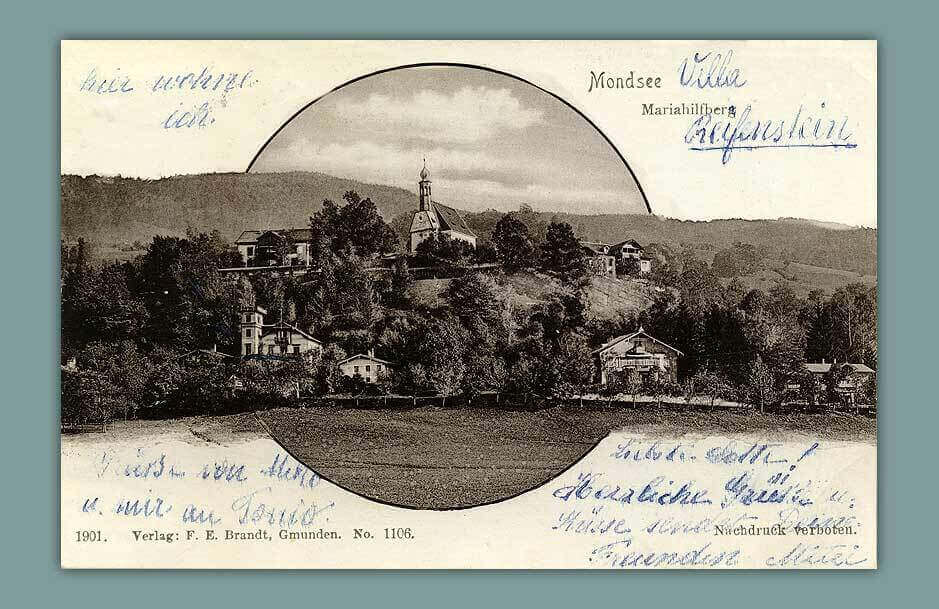 hier wohne
ich.
Mondsee Villa
Mariahilfberg
Reifenstein
Liebste Lotte!
Grüße von
Herzliche Grüße u.
u. mir an
Küsse sendet Deine
1901. Verlag: F. E. Brandt, Gmunden. No. 1106.
Nachdruck verboten.
Freundin Mitzi